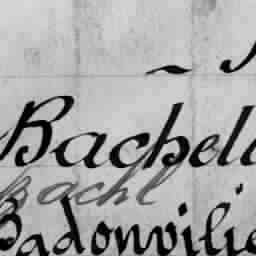 Bachel
bachl
Badonvilie